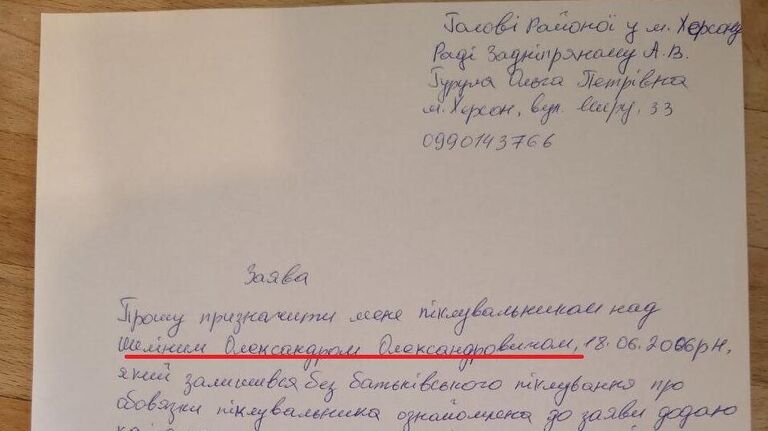 Голові Районої у м. Херсону
Раді Задніпряному А.В.
Гуруля Ольга Петрівна
м. Херсон, вул. Миру, 33
0990143766
Заява
Прошу призначити мене піклувальником над
Шиліним Олександром Олександровичом, 18.06.2006рн,
який залишився без батьківського піклування про
обовязки піклувальника ознайомлена до заяви додаю